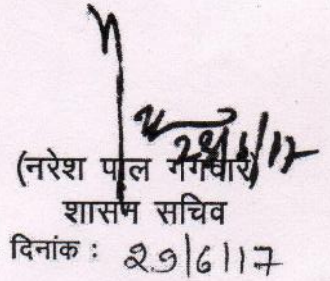 28/6/17
(नरेश पाल गंगवार)
शासन सचिव
दिनांक : 29/6/17